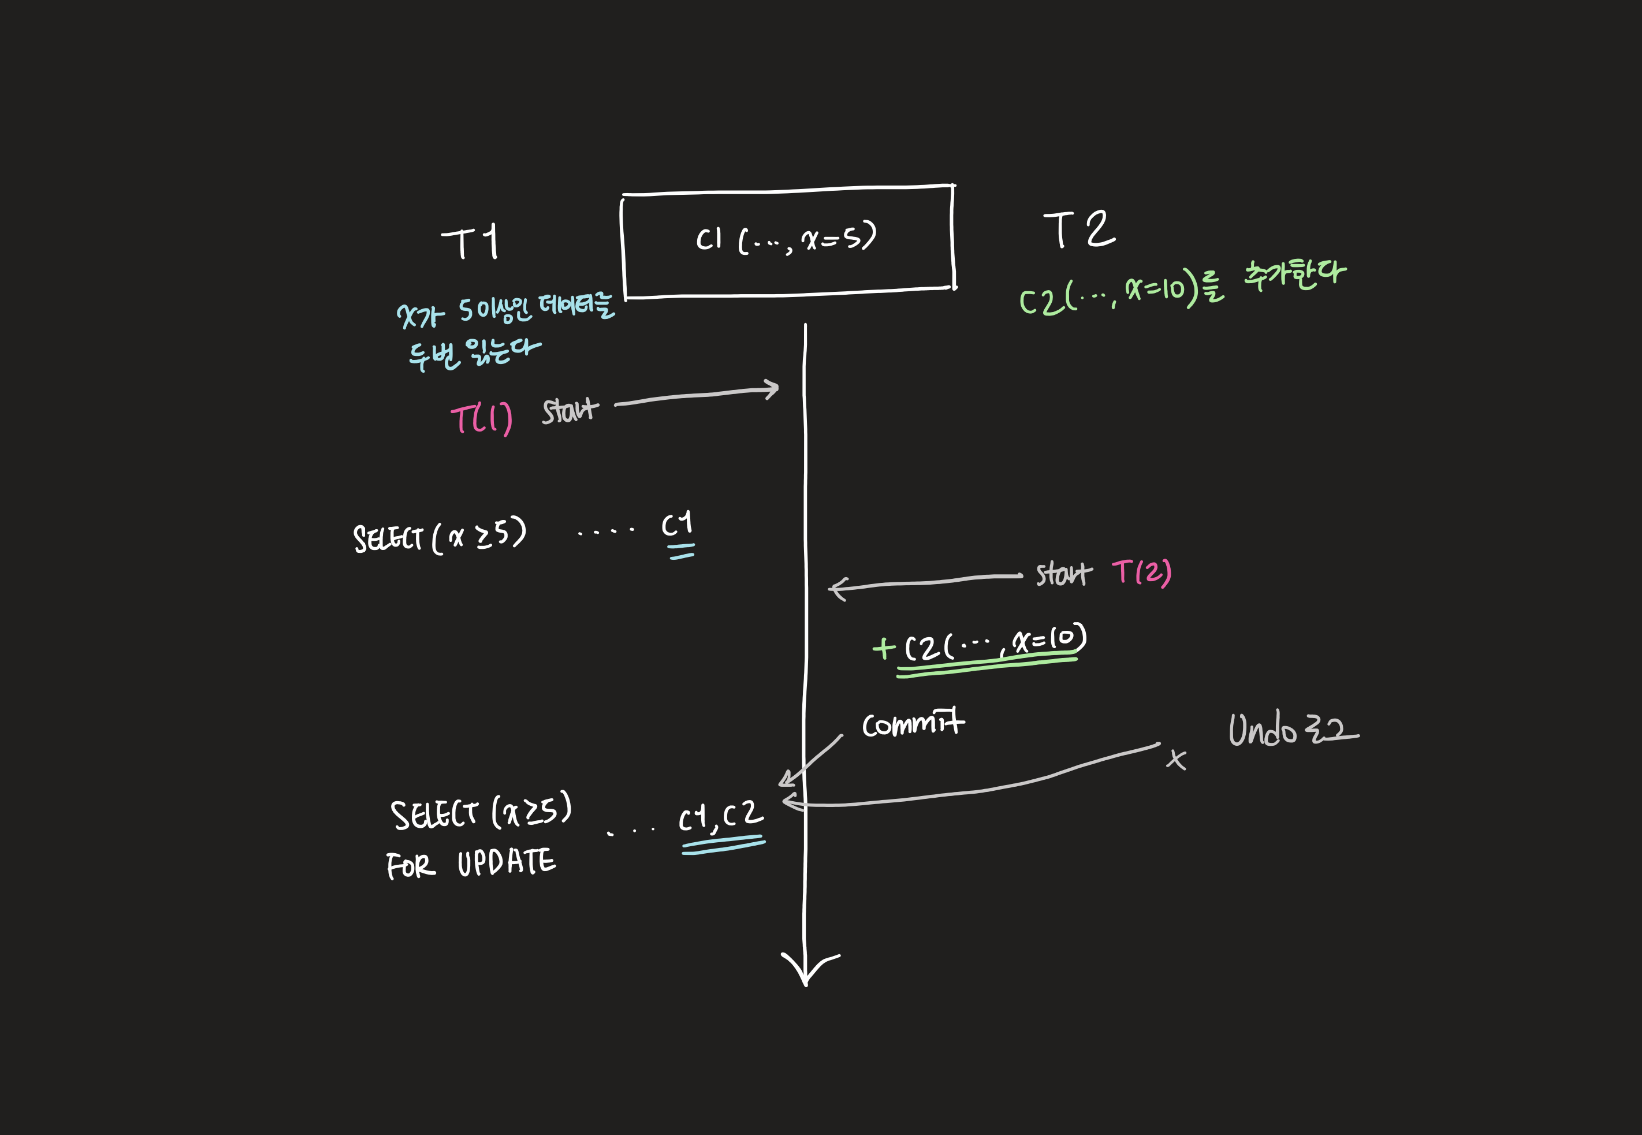 T1
C1 (..., x=5)
T2
x가 5이상인 데이터를
두번 읽는다
C2(..., x=10)를 추가한다
T(1) start
SELECT (x ≥5) .... C1
start T(2)
+ C2(..., x=10)
commit
x Undo로그
SELECT (x≥5)
FOR UPDATE
... C1, C2